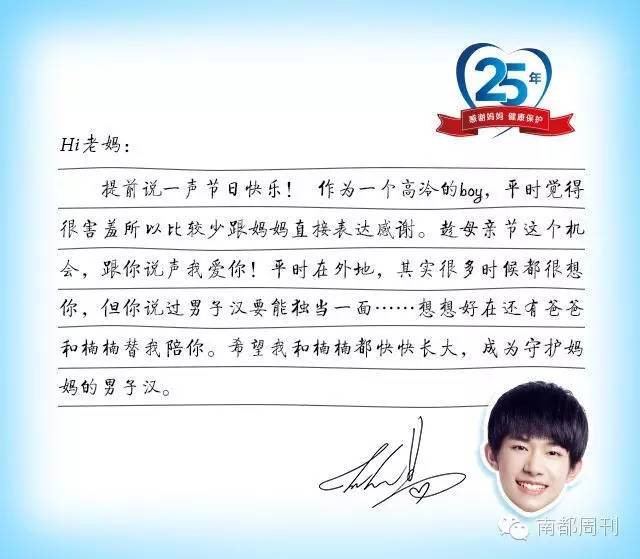 25年
感谢妈妈 健康保护
Hi老妈：
提前说一声节日快乐！ 作为一个高冷的boy，平时觉得
很害羞所以比较少跟妈妈直接表达感谢。趁母亲节这个机
会，跟你说声我爱你！平时在外地，其实很多时候都很想
你，但你说过男子汉要能独当一面……想想好在还有爸爸
和楠楠替我陪你。希望我和楠楠都快快长大，成为守护妈
妈的男子汉。
南都周刊